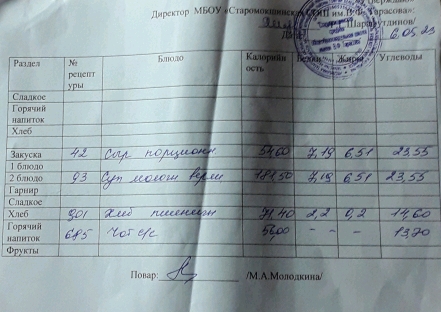 Директор МБОУ «Старомокшинская СОШ им. В.Ф. Тарасова»:
6.05.23
Раздел № рецептуры Блюдо Калорийность Белки Жиры Углеводы
Сладкое
Горячий напиток
Хлеб
Закуска 42 Сыр порционн 54,60 7,19 6,51 23,55
1 блюдо
2 блюдо 93 Суп молочн верм 181,50 7,19 6,51 23,55
Гарнир
Сладкое
Хлеб 901 Хлеб пшеничн 71,40 2,2 0,2 14,60
Горячий напиток 685 Чай с/с 56,00 - - 13,70
Фрукты
Повар: /М.А.Молодкина/